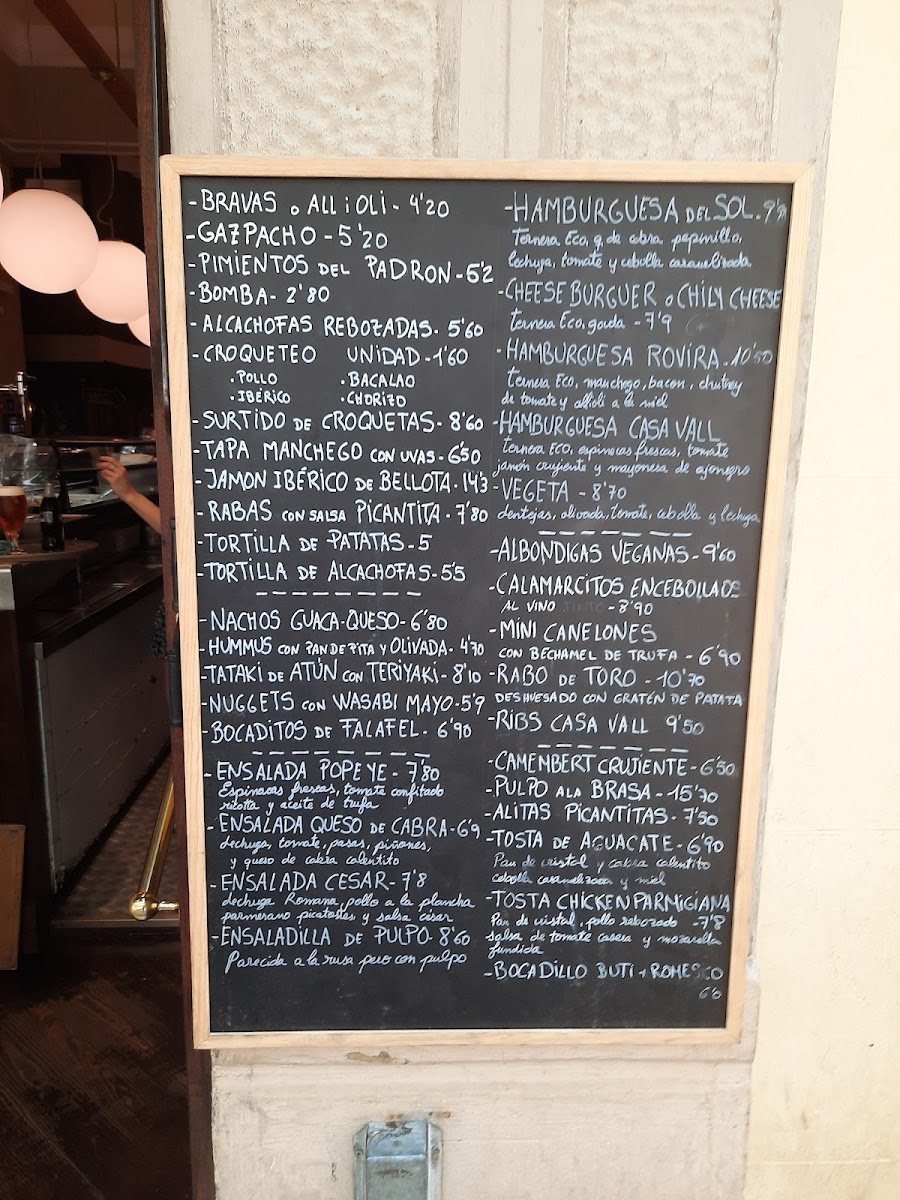 - BRAVAS o ALLiOLi - 4'20
- GAZPACHO - 5'20
- PIMIENTOS DEL PADRON - 5'2
- BOMBA - 2'80
- ALCACHOFAS REBOZADAS. 5'60
- CROQUETEO UNIDAD - 1'60
. POLLO . BACALAO
. IBÉRICO . CHORIZO
- SURTIDO DE CROQUETAS - 8'60
- TAPA MANCHEGO CON UVAS - 6'50
- JAMON IBÉRICO DE BELLOTA. 14'3
- RABAS CON SALSA PICANTITA - 7'80
- TORTILLA DE PATATAS - 5
- TORTILLA DE ALCACHOFAS - 5'5
- NACHOS GUACA-QUESO - 6'80
- HUMMUS CON PAN DE PITA Y OLIVADA - 4'70
- TATAKI DE ATÚN CON TERIYAKI - 8'10
- NUGGETS CON WASABI MAYO - 5'9
- BOCADITOS DE FALAFEL - 6'90
- ENSALADA POPEYE - 7'80
Espinacas frescas, tomate confitado
ricotta y aceite de trufa
- ENSALADA QUESO DE CABRA - 6'9
lechuga, tomate, pasas, piñones,
y queso de cabra calentito
- ENSALADA CESAR - 7'8
lechuga Romana, pollo a la plancha
parmesano picatostes y salsa césar
- ENSALADILLA DE PULPO - 8'60
Parecida a la rusa pero con pulpo
- HAMBURGUESA DEL SOL.
Ternera Eco, q de cabra pepinillo,
lechuga, tomate y cebolla caramelizada
- CHEESE BURGUER o CHILY CHEESE
ternera Eco, gouda - 7'9
- HAMBURGUESA ROVIRA. 10'50
ternera Eco, manchego, bacon, chutney
de tomate y allioli a la miel
- HAMBURGUESA CASA VALL
ternera ECO, espinacas frescas, tomate
jamón crujiente y mayonesa de ajonegro
- VEGETA - 8'70
lentejas, olivada, tomate, cebolla y lechuga
- ALBONDIGAS VEGANAS - 9'60
- CALAMARCITOS ENCEBOLLAOS
AL VINO TINTO - 8'90
- MINI CANELONES
CON BECHAMEL DE TRUFA - 6'90
- RABO DE TORO - 10'70
DESHUESADO CON GRATÉN DE PATATA
- RIBS CASA VALL 9'50
- CAMEMBERT CRUJIENTE - 6'50
- PULPO A LA BRASA - 15'70
- ALITAS PICANTITAS - 7'50
- TOSTA DE AGUACATE - 6'90
Pan de cristal y cabra calentito
cebolla caramelizada y miel
- TOSTA CHICKEN PARMIGIANA
Pan de cristal, pollo rebozado - 7'8
salsa de tomate casera y mozarella
fundida
- BOCADILLO BUTI + ROMESCO